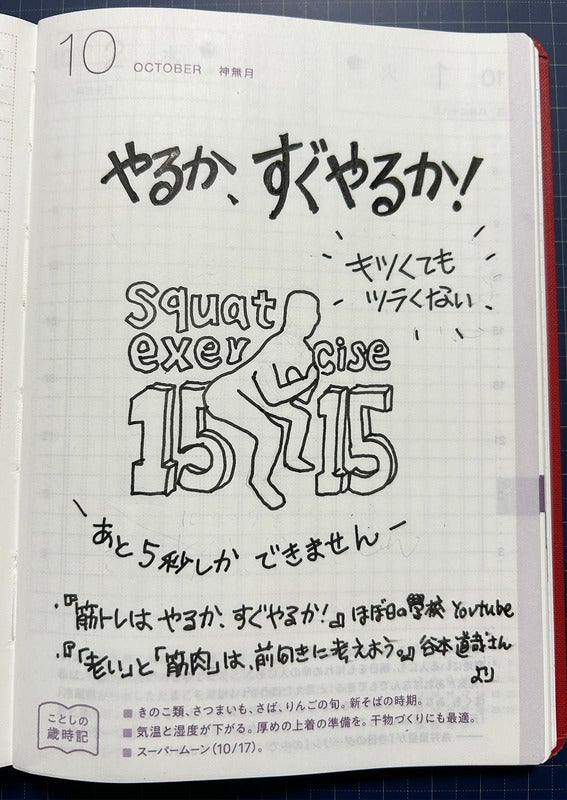 10 OCTOBER 神無月
やるか、すぐやるか!
キツくても
ツラくない
Squat
exercise
15 15
あと5秒しか できません
・『筋トレは やるか、すぐやるか!』 ほぼ日の學校 Youtube
・『「老い」と「筋肉」は、前向きに考えよう。』 谷本道哉さん
より
ことしの
歳時記
■ きのこ類、さつまいも、さば、りんごの旬。新そばの時期。
■ 気温と湿度が下がる。厚めの上着の準備を。干物づくりにも最適。
■ スーパームーン(10/17)。